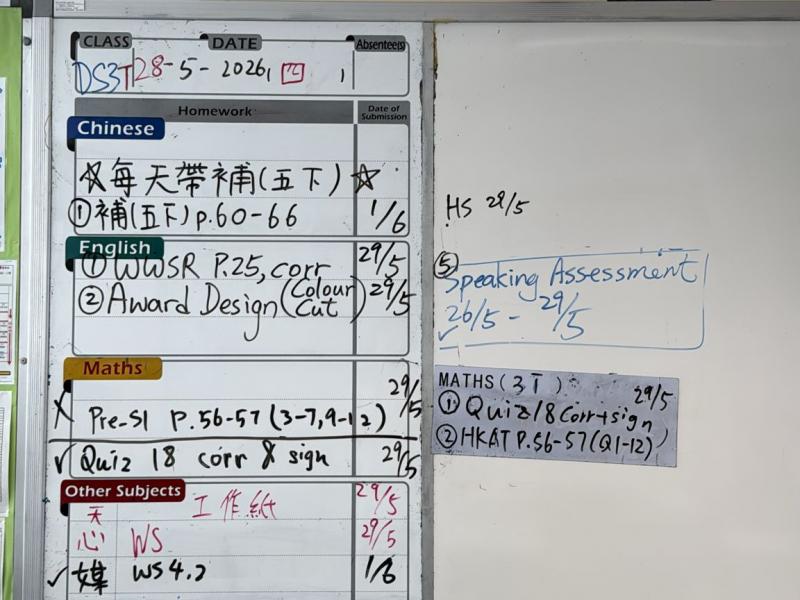 CLASS DATE Absentees
DS3T 28-5-2026, 四
Homework Date of Submission
Chinese
☆每天帶補(五下)☆
①補(五下)p.60-66 1/6
English
① WWSR P.25, corr 29/5
② Award Design (Colour Cut) 29/5
Maths
X Pre-S1 P.56-57 (3-7, 9-12) 29/5
✓ Quiz 18 corr & sign 29/5
Other Subjects
天 工作紙 29/5
心 WS 29/5
✓ 媒 WS 4.2 1/6
HS 29/5
⑤
Speaking Assessment
26/5 - 29/5
✓
MATHS (3T) 29/5
① Quiz 18 Corr+sign
② HKAT P.56-57 (Q1-12)